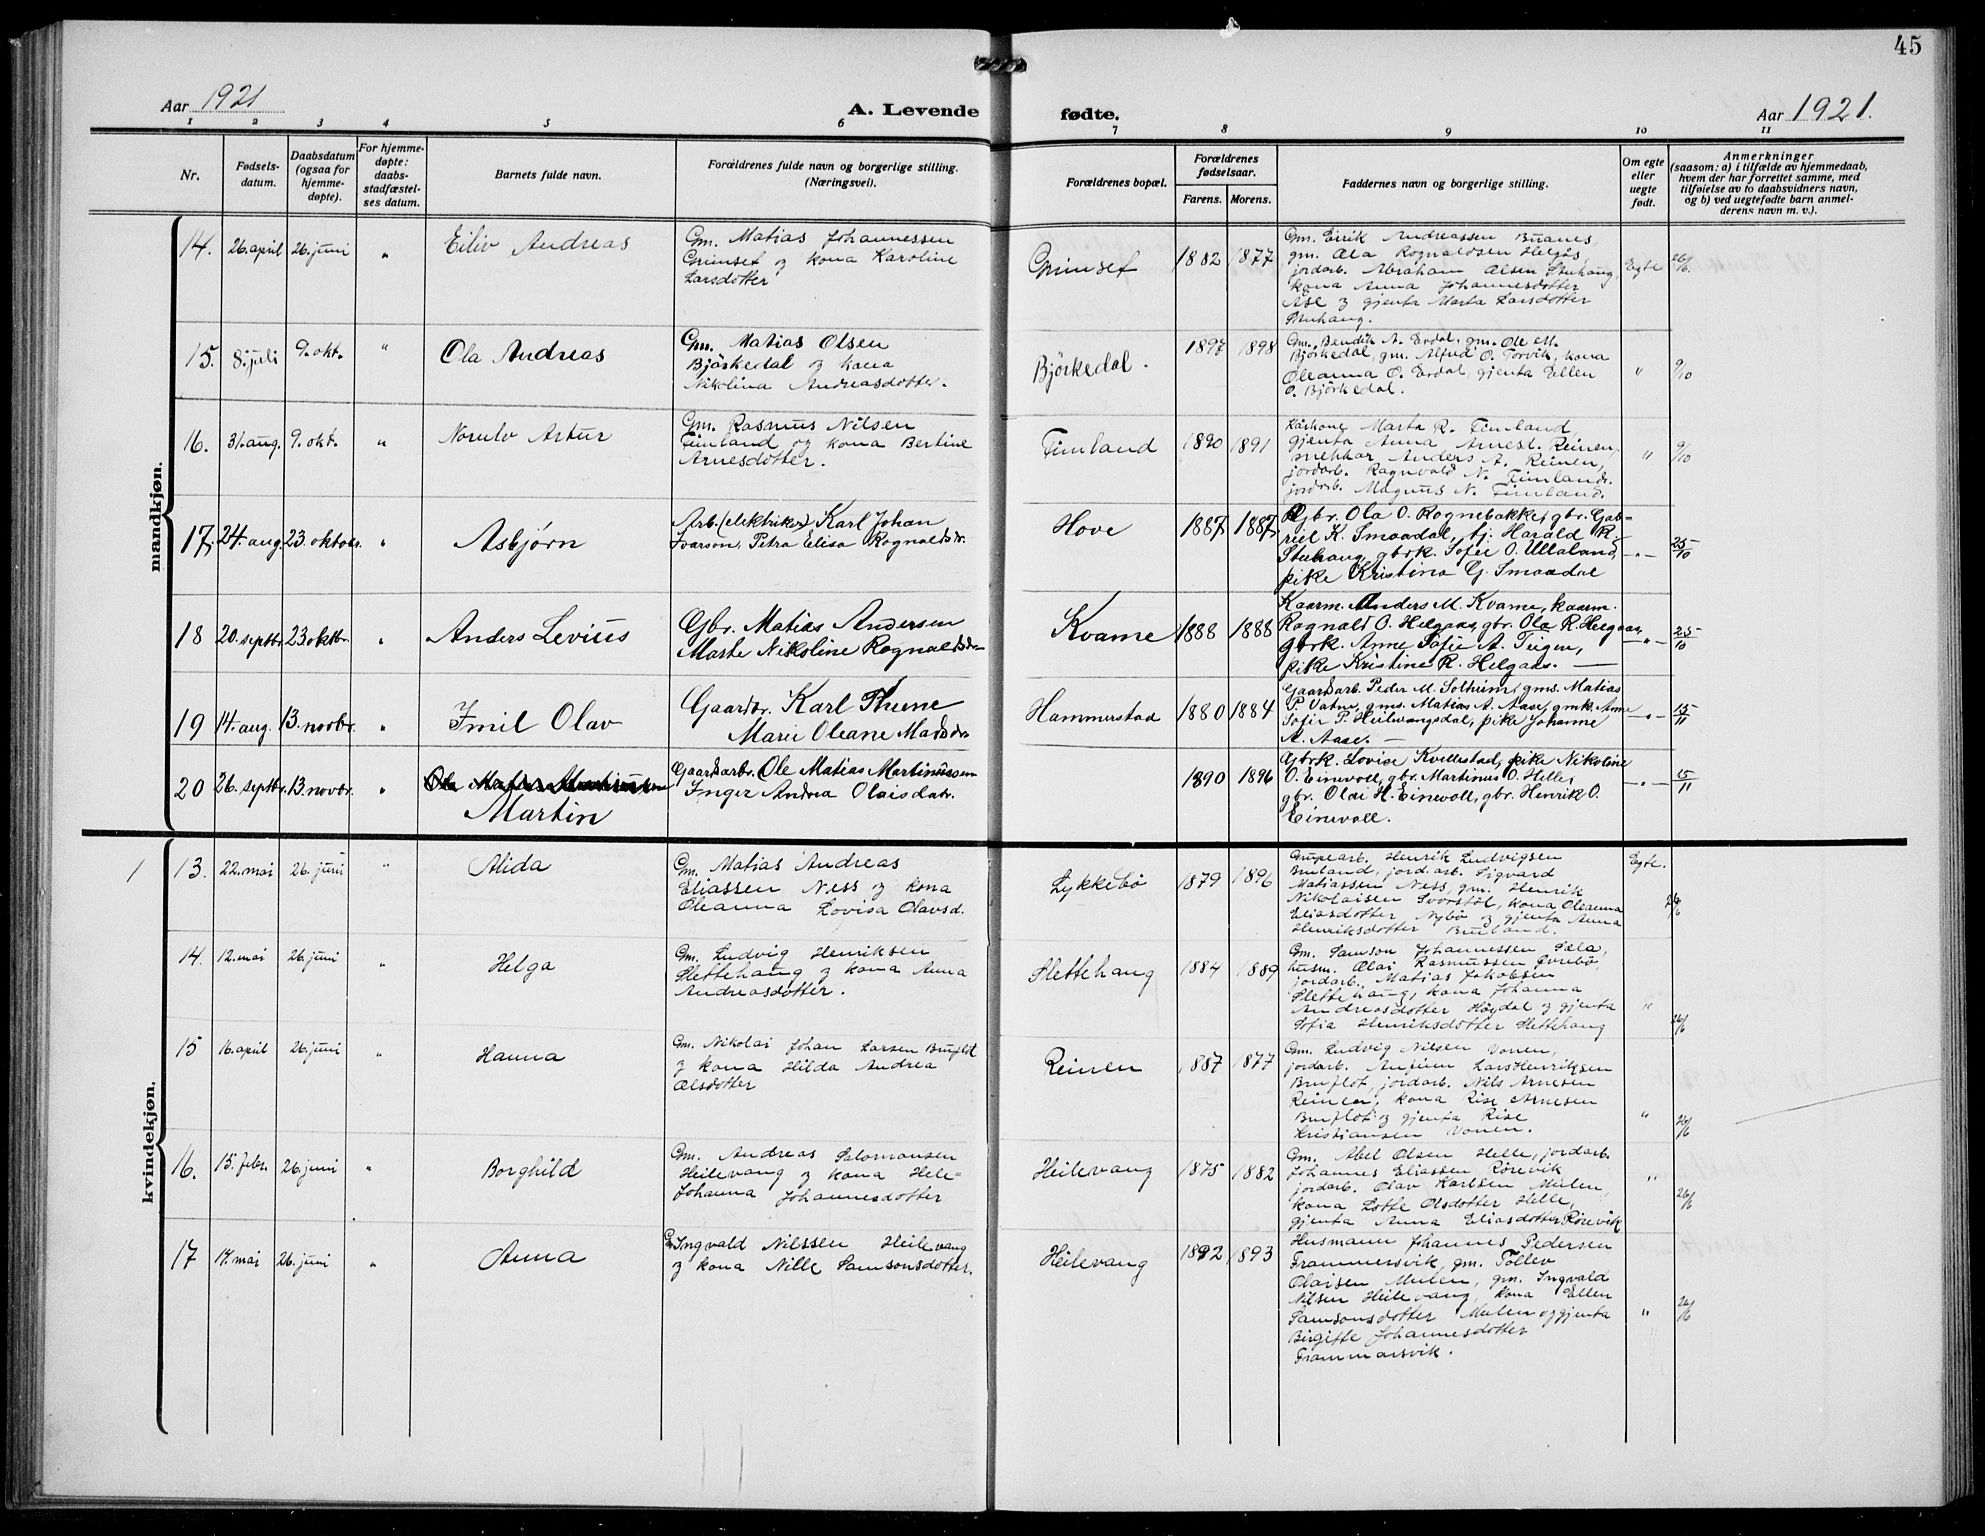 45
Aar 1921
A. Levende
fødte.
Aar 1921.
1 2 3 4 5 6 7 8 9 10 11
Nr.
Fødsels-
datum.
Daabsdatum
(ogsaa for
hjemme-
døpte).
For hjemme-
døpte:
daabs-
stadfæstel-
ses datum.
Barnets fulde navn.
Forældrenes fulde navn og borgerlige stilling.
(Næringsvei).
Forældrenes bopæl.
Forældrenes
fødselsaar.
Farens. Morens.
Faddernes navn og borgerlige stilling.
Om egte
eller
uegte
født.
Anmerkninger
(saasom: a) i tilfælde av hjemmedaab,
hvem der har forrettet samme, med
tilføielse av to daabsvidners navn,
og b) ved uegtefødte barn anmel-
derens navn m. v.).
mandkjøn.
14. 26. april 26. juni " Eiliv Andreas
Gm. Matias Johannessen
Grimset og kona Karoline
Larsdotter
Grimset 1882 1877
Gm. Eirik Andreassen Buanes,
gm. Ola Rognaldsen Helgås,
jordarb. Abraham Olsen Stuhaug,
kona Anna Johannesdotter
Åse og gjenta Marta Larsdotter
Stuhaug.
Egte 26/6
15. 8. juli 9. okt. " Ola Andreas
Gm. Matias Olsen
Bjørkedal og kona
Nikolina Andreasdotter.
Bjørkedal. 1897 1898
Gm. Bendik A. Erdal, gm. Ole M.
Bjørkedal, gm. Alfred O. Torvik, kona
Oleanna O. Erdal, gjenta Ellen
O. Bjørkedal.
" 9/10
16. 31. aug. 9. okt. " Norulv Artur
Gm. Rasmus Nilsen
Timland og kona Bertine
Arnesdotter.
Timland 1890 1891
Kårkone Marta R. Timland,
gjenta Anna Arnesd. Reinen,
snekkar Anders A. Reinen,
jordarb. Ragnvald N. Timland.
jordarb. Magnus N. Timland.
" 9/10
17. 24. aug. 23. oktober. " Asbjørn
Arb. (elektriker) Karl Johan
Ivarson, Petra Elisa Rognaldsdr.
Hove 1887 1887
Gbr. Ola O. Rognebakke, gbr. Gab-
riel K. Smaadal, tj. Harald R.
Stuhaug, gbrk. Sofie O. Ullaland,
pike Kristina G. Smaadal
-"- 25/10
18 20. septbr. 23. oktbr. " Anders Levius
Gbr. Matias Andersen
Marte Nikoline Rognaldsdr.
Kvame 1888 1888
Kaarm. Anders M. Kvame, kaarm.
Rognald O. Helgaas, gbr. Ola R. Helgaas,
gbrk. Anne Sofie A. Teigen,
pike Kristine R. Helgaas. —
-"- 25/10
19 14. aug. 13. novbr. " Imil Olav
Gaardbr. Karl Thune
Marie Oleane Madsdr.
Hammerstad 1880 1884
Gaardsarb. Peder M. Solheim, gms. Matias
P. Vatne, gms. Matias A. Aase, gmk. Anne
Sofie P. Heilevangsdal, pike Johanne
A. Aase. —
-"- 15/11
20 26. septbr. 13. novbr. "
Martin
Gaardsarbr. Ole Matias Martinussen
Inger Andrea Olaisdatr.
1890 1896
Gbrk. Lovise Kvellestad, pike Nikoline
O. Einevoll, gbr. Martinus O. Helle,
gbr. Olai H. Einevoll, gbr. Henrik O.
Einevoll.
-"- 15/11
kvindekjøn.
1 13. 22. mai 26. juni " Alida
Gm. Matias Andreas
Eliassen Ness og kona
Oleanna Lovisa Olavsd.
Lykkebø 1879 1896
Grupearb. Henrik Ludvigsen
Buland, jord.arb. Sigvard
Matiassen Ness, gm. Henrik
Nikolaisen Svorstøl, kona Oleanna
Eliasdotter Nybø og gjenta Anna
Henriksdotter Buland.
Egte. 26/6
14. 12. mai 26. juni " Helga
Gm. Ludvig Henriksen
Slettehaug og kona Anna
Andreasdotter.
Slettehaug 1884 1889
Gm. Samson Johannessen Sæla,
husm. Olai Rasmussen Øvrebø,
jordarb. Matias Jakobsen
Slettehaug, kona Johanna
Andreasdotter Høydal og gjenta
Sofia Henriksdotter Slettehaug
" 26/6
15 16. april 26. juni " Hanna
Gm. Nikolai Johan Larsen Bruflot
og kona Hilda Andrea
Olsdotter
Reinen 1887 1877
Gm. Ludvig Nilsen Vonen,
jordarb. Anfinn LarsHenriksen
Bruflot, jordarb. Nils Arnesen
Reinen, kona Rise Arnesen
Bruflot og gjenta Rise
Kristiansen Vonen.
" 26/6
16. 15. febr. 26. juni " Borghild
Gm. Andreas Salomonsen
Heilevang og kona Hele-
Johanna Johannesdotter
Heilevang 1875 1882
Gm. Abel Olsen Helle, jordarb.
Johannes Eliassen Rørevik
jordarb. Olav Karlsen Mulen,
kona Lotte Olsdotter Helle,
gjenta Anna Eliasdotter Rørevik
" 26/6
17 14. mai 26. juni " Anna
Gm. Ingvald Nilssen Heilevang
og kona Nille Samsonsdotter.
Heilevang 1892 1893
Husmann Johannes Pedersen
Frammersvik, gm. Tollev
Olaisen Mulen, gm. Ingvald
Nilsen Heilevang, kona Ellen
Samsonsdotter Mulen og gjenta
Birgitte Johannesdotter
Frammarsvik.
" 26/6